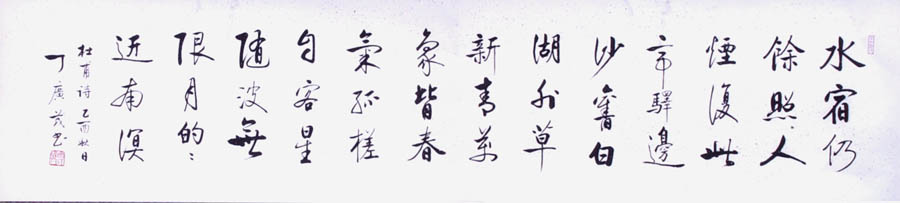 水宿仍
餘照人
煙復此
亭驛邊
沙舊白
湖外草
新青萬
象皆春
氣孤槎
自客星
隨波無
限月的〻
近南溟
杜甫诗乙酉秋日
丁廣茂书